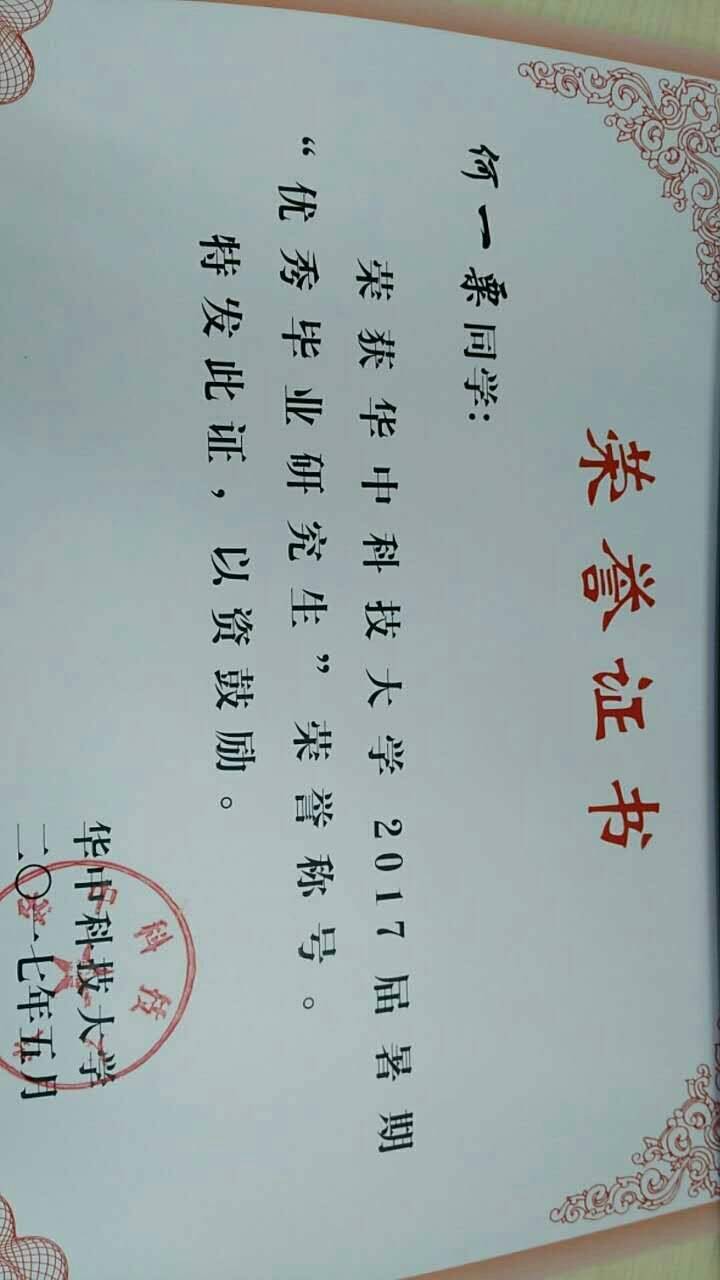 荣誉证书
何一粟同学：
荣获华中科技大学2017届暑期
“优秀毕业研究生”荣誉称号。
特发此证，以资鼓励。
华中科技大学
二〇一七年五月